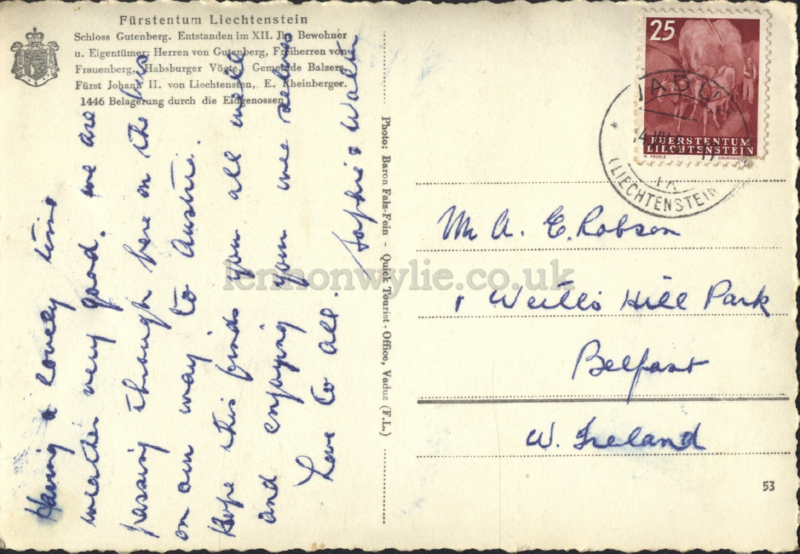 Fürstentum Liechtenstein
Schloss Gutenberg. Entstanden im XII. Jh. Bewohner
u. Eigentümer: Herren von Gutenberg, Freiherren von
Frauenberg, Habsburger Vögte, Gemeinde Balzers,
Fürst Johann II. von Liechtenstein, E. Rheinberger.
1446 Belagerung durch die Eidgenossen
Having a lovely time
weather very good. we are
passing through here on the bus
on our way to Austria.
Hope this finds you all well
and enjoying your
Love to all.
Sophie & Walter
Photo: Baron Falz-Fein - Quick Tourist-Office, Vaduz (F.L.)
25
FUERSTENTUM
LIECHTENSTEIN
VADUZ
(LIECHTENSTEIN)
Mr A. E. Robson
1 Hill Park
Belfast
N. Ireland
53
lennonwylie.co.uk